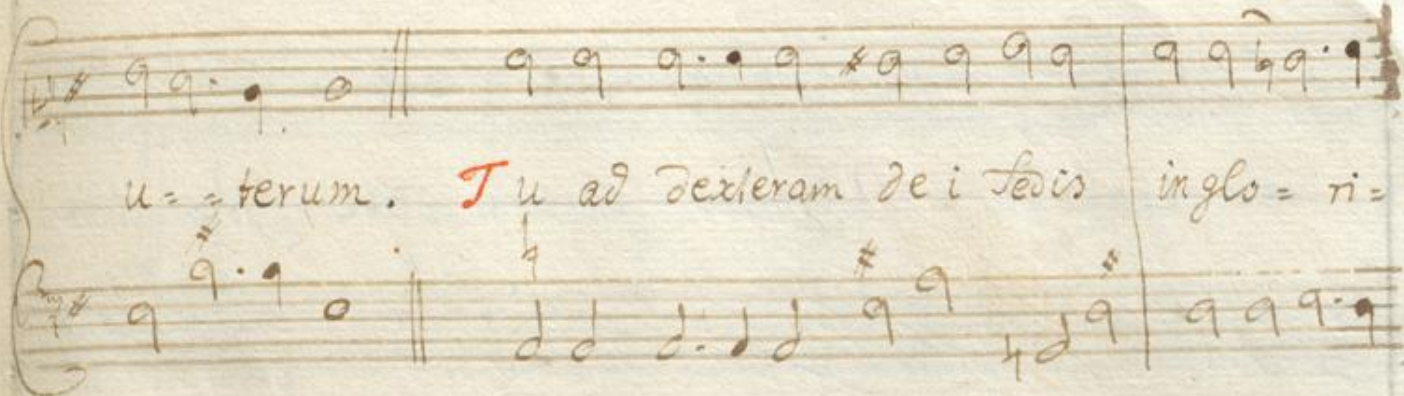 u= =terum. Tu ad dexteram dei sedis in glo= ri=